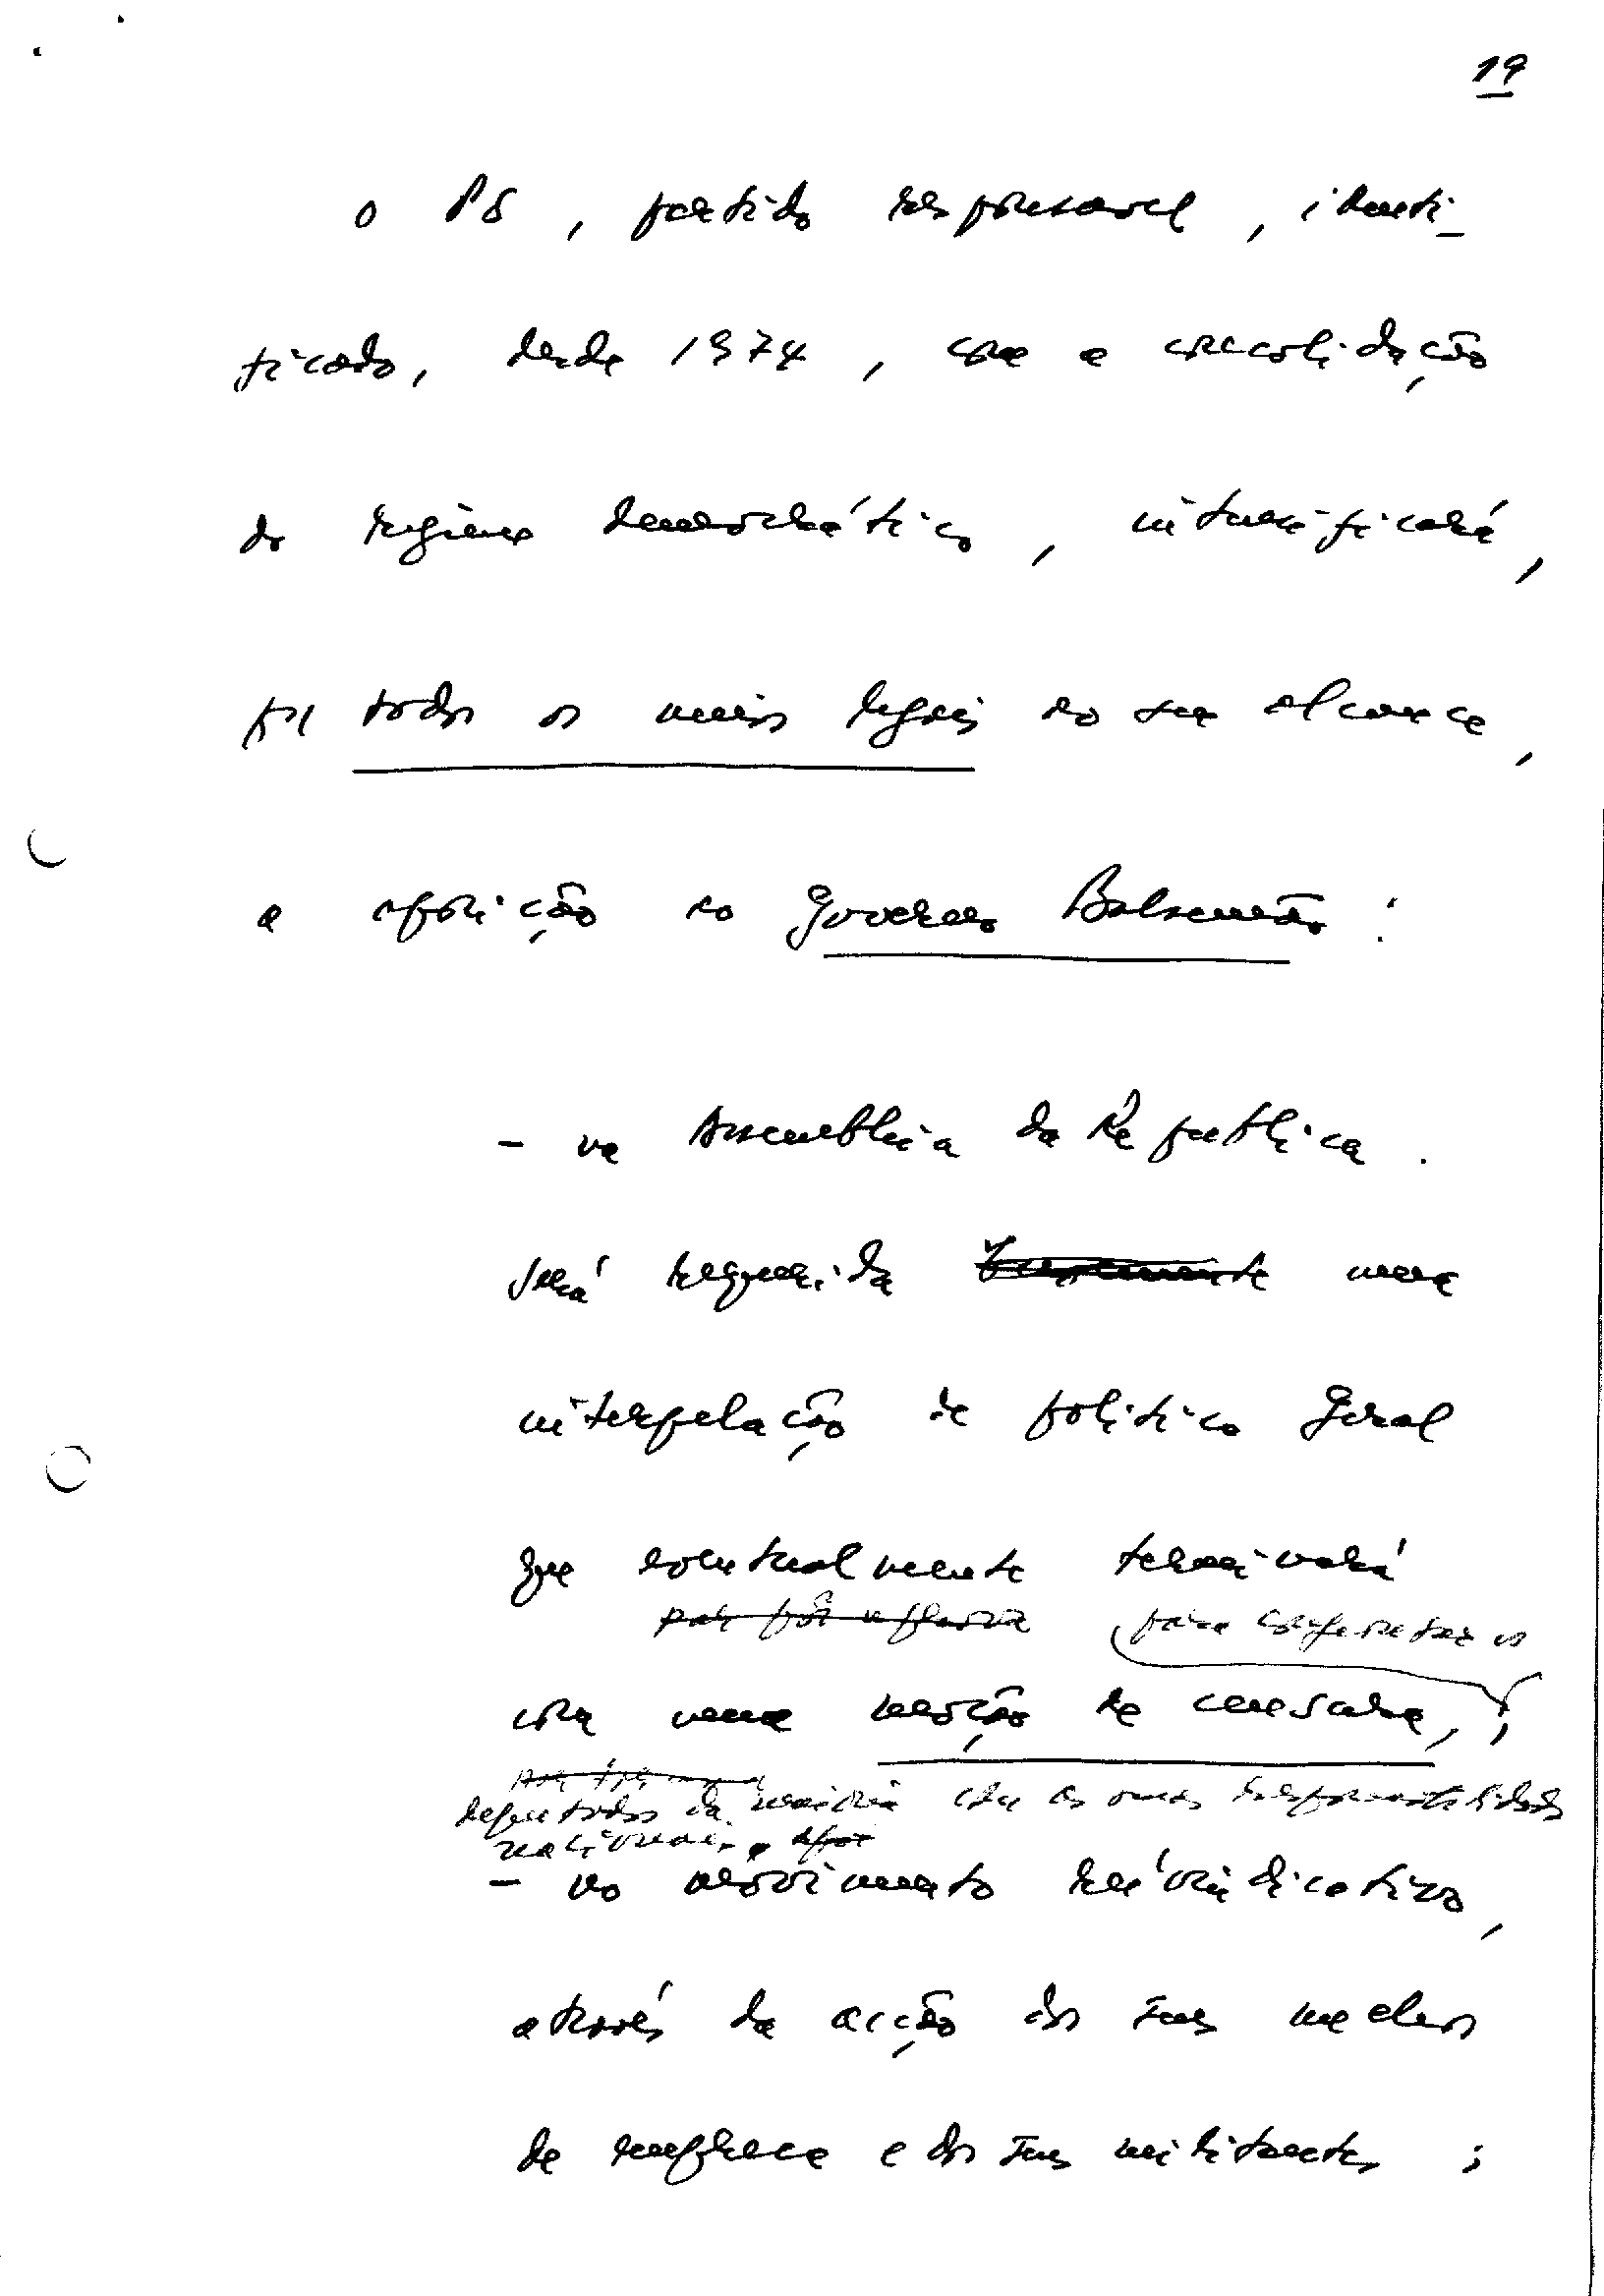 19
o PS, partido responsável, identi-
ficado, desde 1974, com a consolidação
do regime democrático, intensificará,
por todos os meios legais ao seu alcance,
a oposição ao Governo Balsemão:
- na Assembleia da República.
Será requerida uma
interpelação de política geral
que eventualmente terminará
para confrontar os
com uma moção de censura, ;
deputados da maioria com as suas responsabilidades
nacionais.
- no movimento reivindicativo,
através da acção dos seus núcleos
de empresa e dos seus militantes;